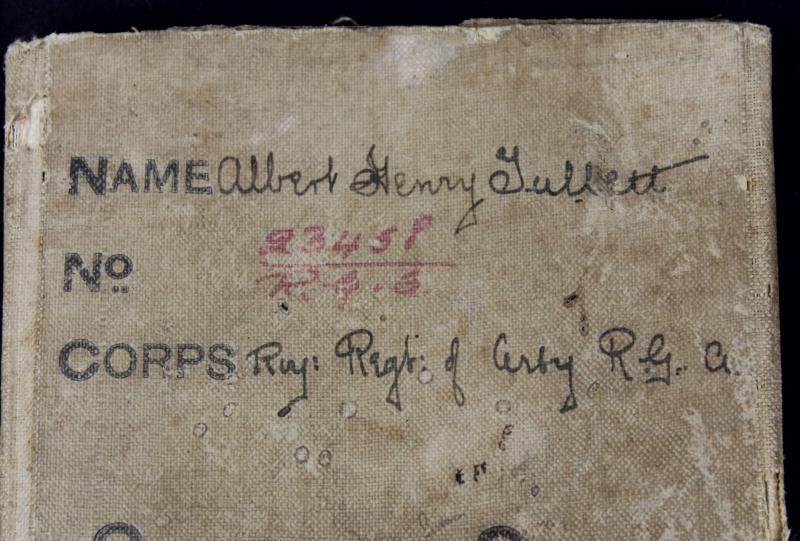 NAME Albert Henry Tullett
No 23458
R.G.A
CORPS Roy: Regt: of Arty R.G.A.